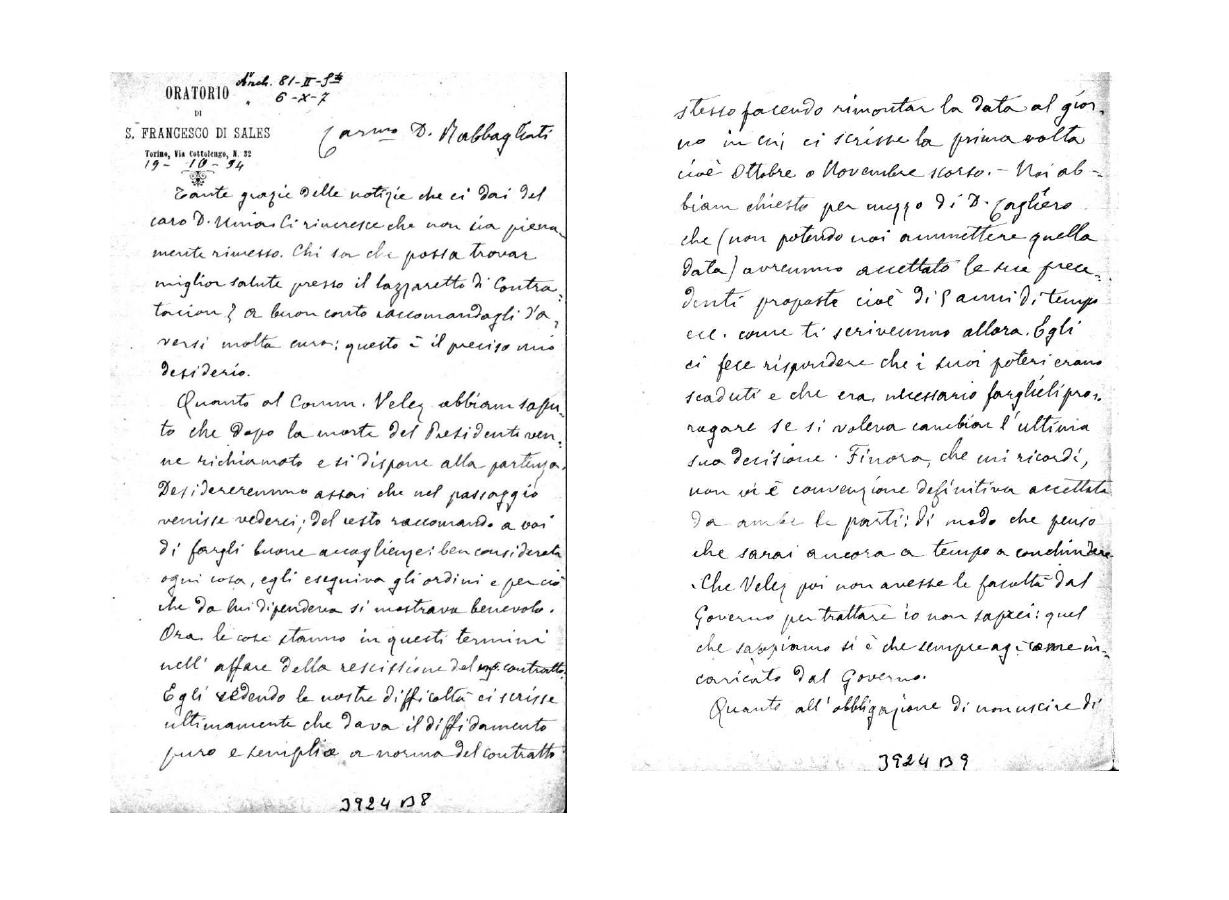 Arch. 81-II-5te
6-X-7
ORATORIO
DI
S. FRANCESCO DI SALES
Torino, Via Cottolengo, N. 32
19 - 10 - 94
Carmo D. Rabbagliati
Tante grazie delle notizie che ci dai del
caro D. Unia. Ci rincresce che non sia piena
mente rimesso. Chi sa che possa trovar
miglior salute presso il lazzaretto di Contra-
tacion? A buon conto raccomandagli d'a-
versi molta cura; questo è il preciso mio
desiderio.
Quanto al Comm. Velez abbiam sapu-
to che dopo la morte del Presidente ven-
ne richiamato e si dispone alla partenza.
Desidereremmo assai che nel passaggio
venisse vederci; del resto raccomando a voi
di fargli buone accoglienze: ben considerata
ogni cosa, egli eseguiva gli ordini e per ciò
che da lui dipendeva si mostrava benevolo.
Ora le cose stanno in questi termini
nell' affare della rescissione del contratto.
Egli vedendo le nostre difficoltà ci scrisse
ultimamente che dava il diffidamento
puro e semplice a norma del contratto
3924 B 8
stesso facendo rimontar la data al gior-
no in cui ci scrisse la prima volta
cioè Ottobre o Novembre scorso. - Noi ab-
biam chiesto per mezzo di D. Cagliero
che (non potendo noi ammettere quella
data) avremmo accettato le sue prece-
denti proposte cioè di 5 anni di tempo
ecc. come ti scrivemmo allora. Egli
ci fece rispondere che i suoi poteri erano
scaduti e che era necessario farglieli pro-
rogare se si voleva cambiar l'ultima
sua decisione. Finora, che mi ricordi,
non vi è convenzione definitiva accettata
da ambe le parti: di modo che penso
che sarai ancora a tempo a conchiudere.
Che Velez poi non avesse le facoltà dal
Governo per trattare io non saprei: quel
che sappiamo si è che sempre agì come in-
caricato dal Governo.
Quanto all'obbligazione di non uscire di
3924 B 9